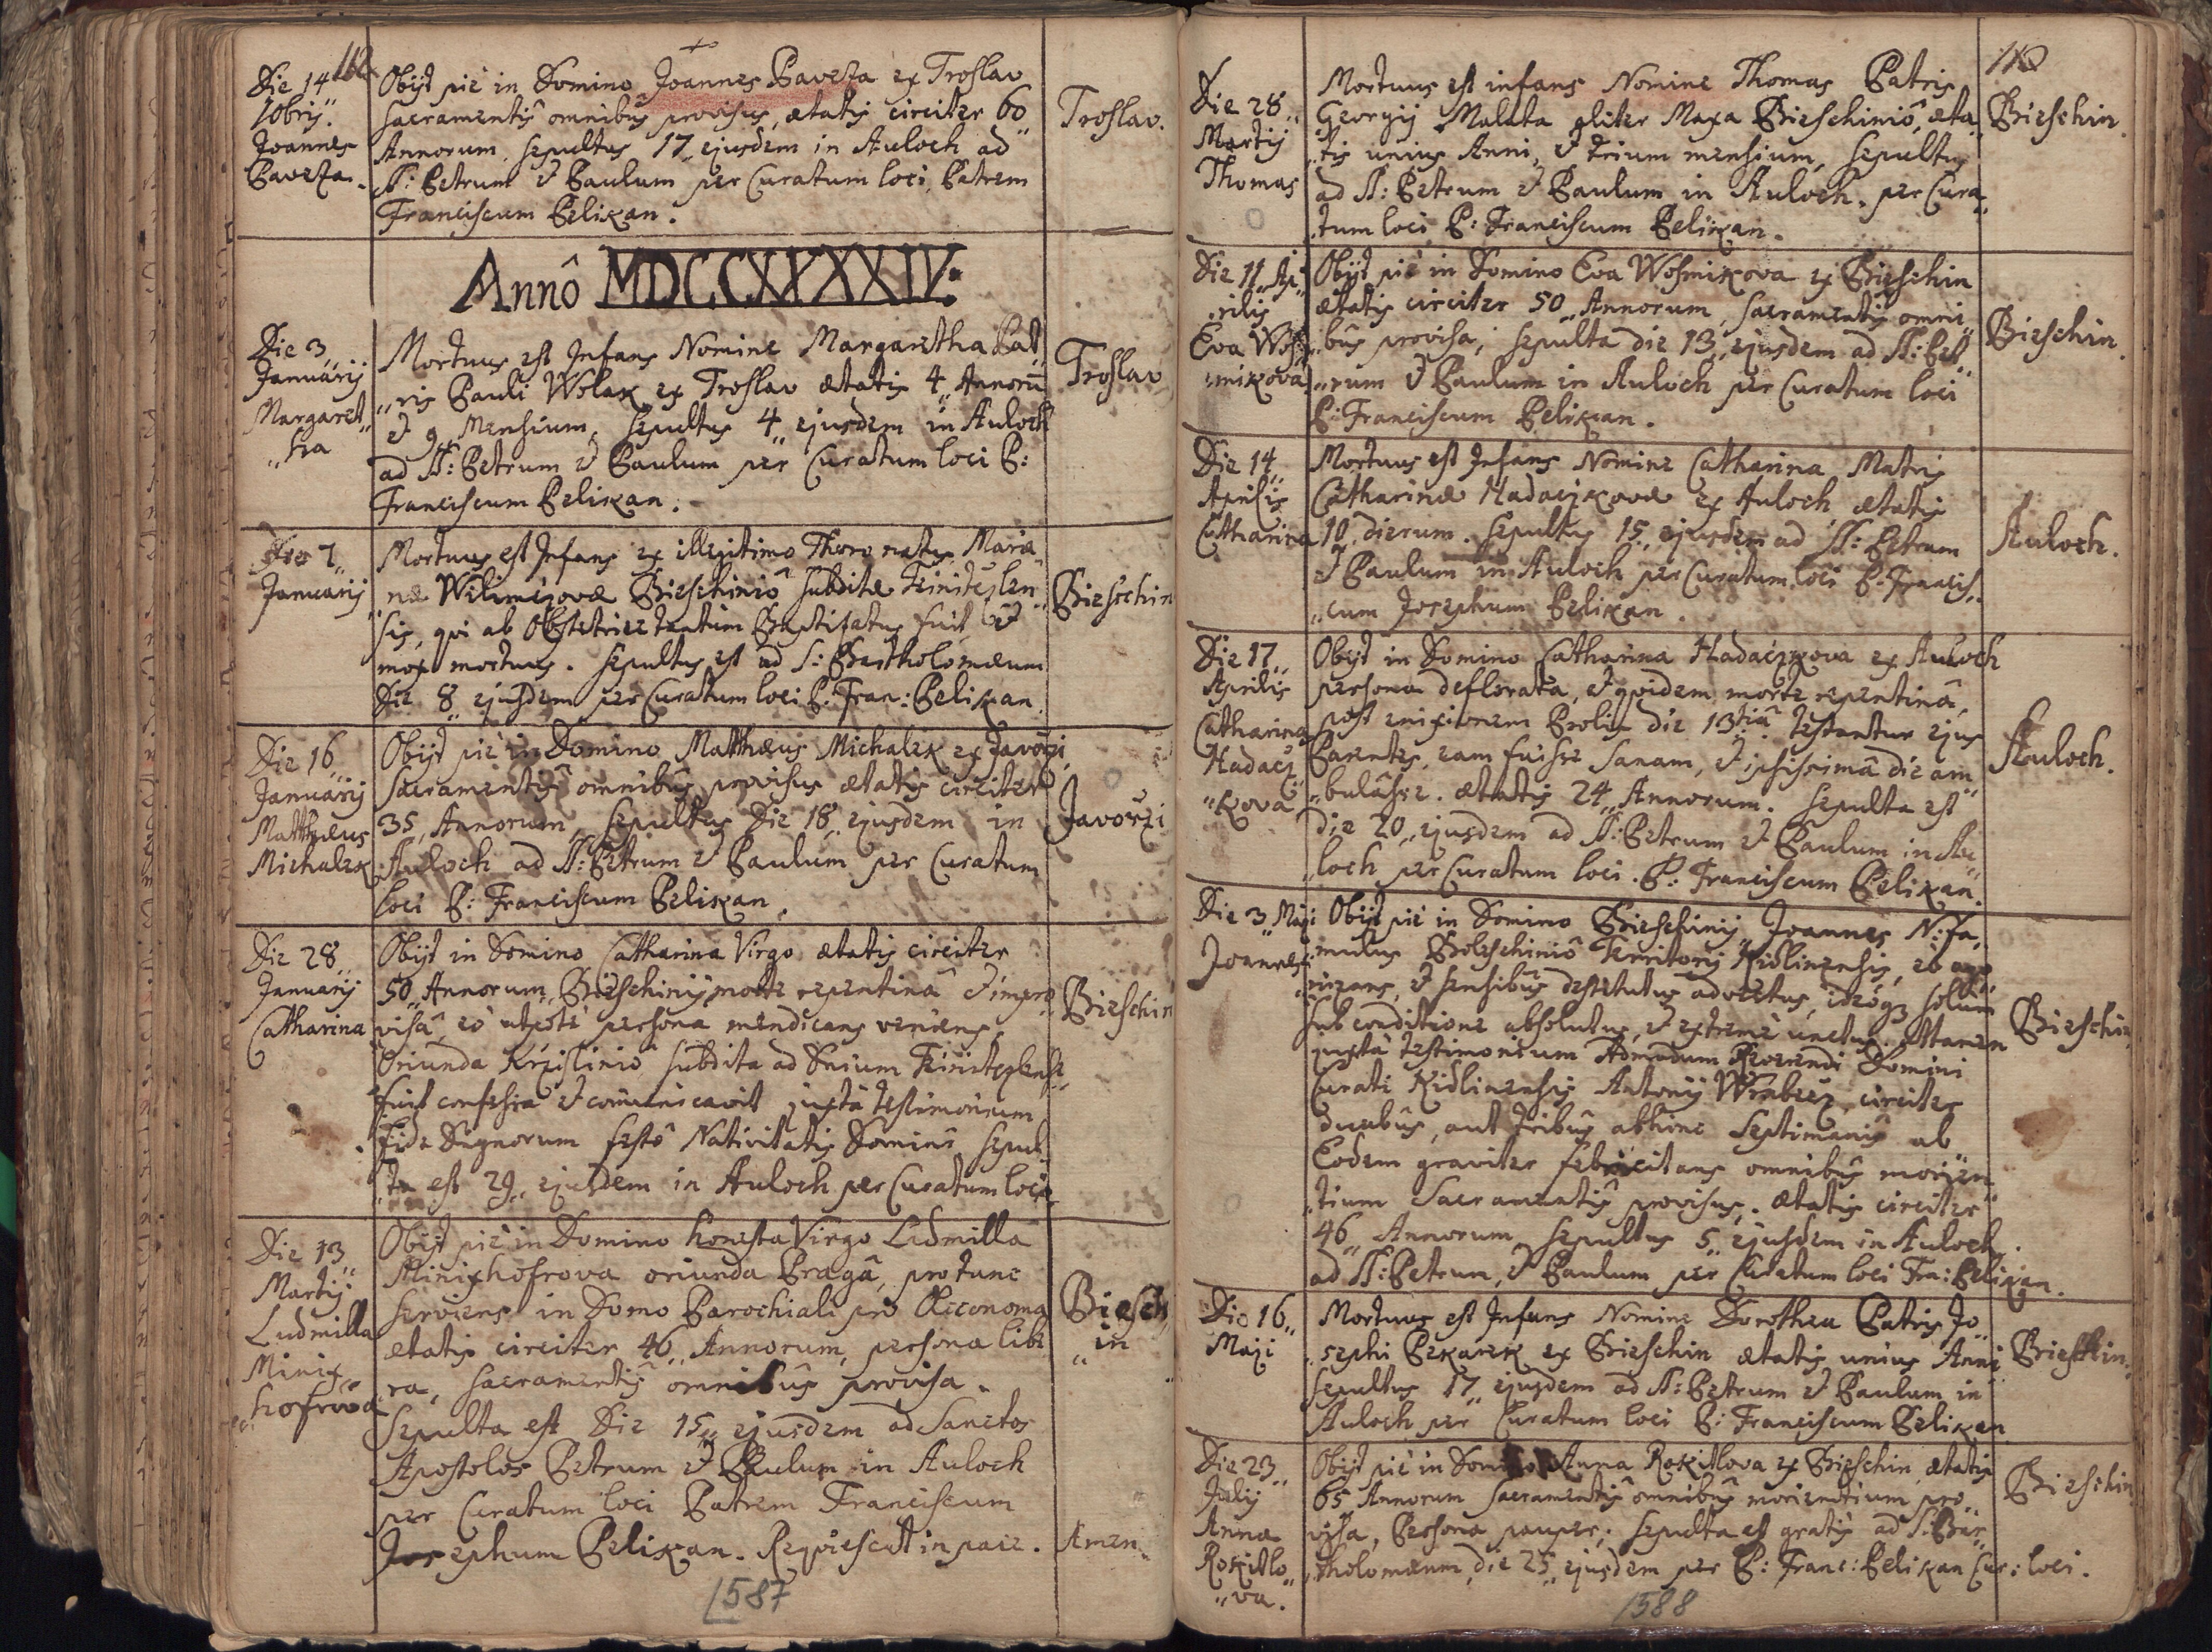 112
Die 14
Xbris.
Joannes
Baveza.
Obijt piè in Domino Joannes Baveza ex Troslav
sacramentis omnibus provisus, ætatis circiter 60
Annorum, sepultus 17 ejusdem in Auloch ad
SS: Petrum et Paulum per Curatum loci, Patrem
Franciscum Pelikan.
Troslav.
Annô MDCCXXXXIV:
Die 3
Januarij
Margaret
„ha
Mortuus est Infans Nomine Margaretha Pat
„ris Pauli Wolak ex Troslav ætatis 4 Annorū
et 9 Mensium, sepultus 4 ejusdem in Auloch
ad SS: Petrum et Paulum per Curatum loci P:
Franciscum Pelikan.
Troslav
Die 7
Januarij
Mortuus est Infans ex illegitimo Thoro natus, Maria
næ Wilimezovæ Brieschiniô subditæ
sis, qvi ab Obstetrice tantùm Baptisatus fuit, et
mox mortuus. sepultus est ad S: Bartholomæum
Die 8 ejusdem per Curatum loci P: Fran: Pelikan.
Brieschin
Die 16
Januarij
Matthæus
Michalek
Obijt piè in Domino Matthæus Michalek ex Javorzi,
sacramentis omnibus provisus ætatis circiter
35 Annorum, sepultus Die 18 ejusdem in
Auloch ad SS: Petrum et Paulum per Curatum
loci P: Franciscum Pelikan.
Javorzi
Die 28
Januarij
Catharina
Obijt in Domino Catharina Virgo ætatis circiter
50 Annorum, Brieschinij morte repentinâ et impro
visâ, eò utpote persona mendicans veniens,
Oriunda subdita ad
fuit confessa et com̄unicavit juxta testimonium
fide Dignorum festô Nativitatis Domini, sepul
„ta est 29 ejusdem in Auloch per Curatum loci.
Brieschin
Die 13
Martij
Ludmilla
Minix„
hofrova
Obijt piè in Domino honesta Virgo Ludmilla
Minixhofrova oriunda Pragâ, pro tunc
serviens in Domo Parochiali pro Oeconoma
ætatis circiter 46 Annorum, persona libe
ra, sacramentis omnibus provisa.
sepulta est Die 15 ejusdem ad Sanctos
Apostolos Petrum et Paulum in Auloch
per Curatum loci Patrem Franciscum
Josephum Pelikan. Reqviescat in pace.
Amen.
Briesch
„in
1587
113
Die 28
Martij
Thomas
Mortuus est infans Nomine Thomas Patris
Georgij Malata aliter Maxa Brieschiniô, æta
„tis unius Anni, et trium mensium, sepultus
ad SS: Petrum et Paulum in Auloch. per Cura
„tum loci P: Franciscum Pelikan.
Brieschin.
Die 11 Ap
„rilis
Eva Wos„
„mikova
Obijt piè in Domino Eva Wosmikova ex Brieschin
ætatis circiter 50 Annorum, sacramentis omni
„bus provisa, sepulta die 13 ejusdem ad SS: Pet
„rum et Paulum in Auloch per Curatum loci
P: Franciscum Pelikan.
Brieschin.
Die 14
Aprilis
Catharina
Mortuus est Infans Nomine Catharina, Matris
Catharinæ Hadaczkovæ ex Auloch ætatis
10 dierum. sepultus 15 ejusdem ad SS: Petrum
et Paulum in Auloch per Curatum loci P. Francis„
„cum Josephum Pelikan.
Auloch.
Die 17
Aprilis
Catharina
Hadacz
„kova
Obijt in Domino Catharina Hadaczkova ex Auloch
persona deflorata, et qvidem morte repentinâ,
post enixionem Prolis die 13tiâ testantur ejus
Parentes, eam fuisse sanam, et ipsissimâ die am
„bulâsse. ætatis 24 Annorum. sepulta est
die 20 ejusdem ad SS: Petrum et Paulum in Au
„loch per Curatum loci. P: Franciscum Pelikan.
Auloch.
Die 3 Maji
Joannes
Obijt piè in Domino Brieschinij Joannes N: fa„
„mulus Boleschiniô Territorij Kidlinensis, eò ago„
„nizans, et sensibus destitutus advectus, ideóqz solùm
sub conditione absolutus, et extremè unctus. Attamen
juxta testimonium Admodum Reverendi Domini
Curati Kidlinensis Antonij circiter
duabus, aut tribus abhinc Septimanis ab
Eodem graviter febricitans omnibus morien
„tium Sacramentis provisus. ætatis circiter
46 Annorum, sepultus 5 ejusdem in Auloch
ad SS: Petrum, et Paulum per Curatum loci Fra: Pelikan.
Brieschin
Die 16
Maji
Mortuus est Infans Nomine Dorothea Patris Jo
„sephi Pekarek ex Brieschin ætatis unius Anni
sepultus 17 ejusdem ad SS: Petrum et Paulum in
Auloch per Curatum loci P: Franciscum Pelikan
Brieschin.
Die 23
Julij
Anna
Rokitlo
„va.
Obijt piè in Domino Anna Rokitlova ex Brieschin, ætatis
65 Annorum sacramentis omnibus morientium pro„
visa, Persona pauper, sepulta est gratis ad S: Bar
„tholomæum die 25 ejusdem per P: Franc: Pelikan Cur: loci.
Brieschin
1588